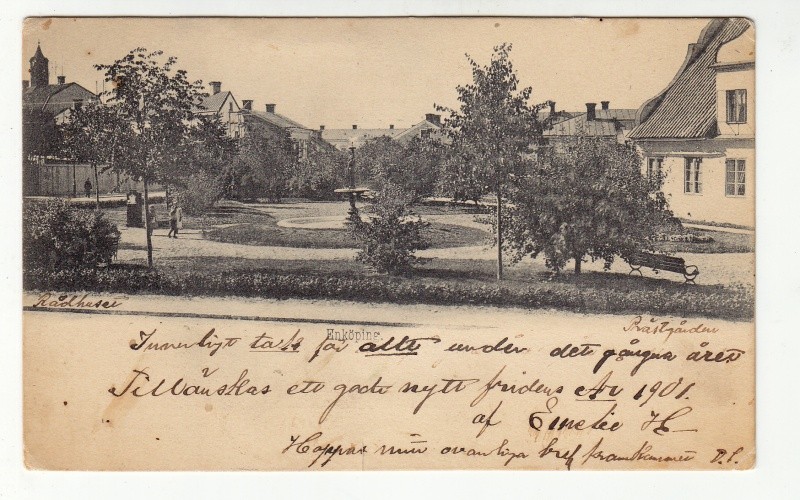 Rådhuset
Prästgården
Enköping
Innerligt tack för allt under det gångna året
Tillönskas ett godt nytt fridens År 1901.
af Emelie H
Hoppas min bref framkommer D.S.